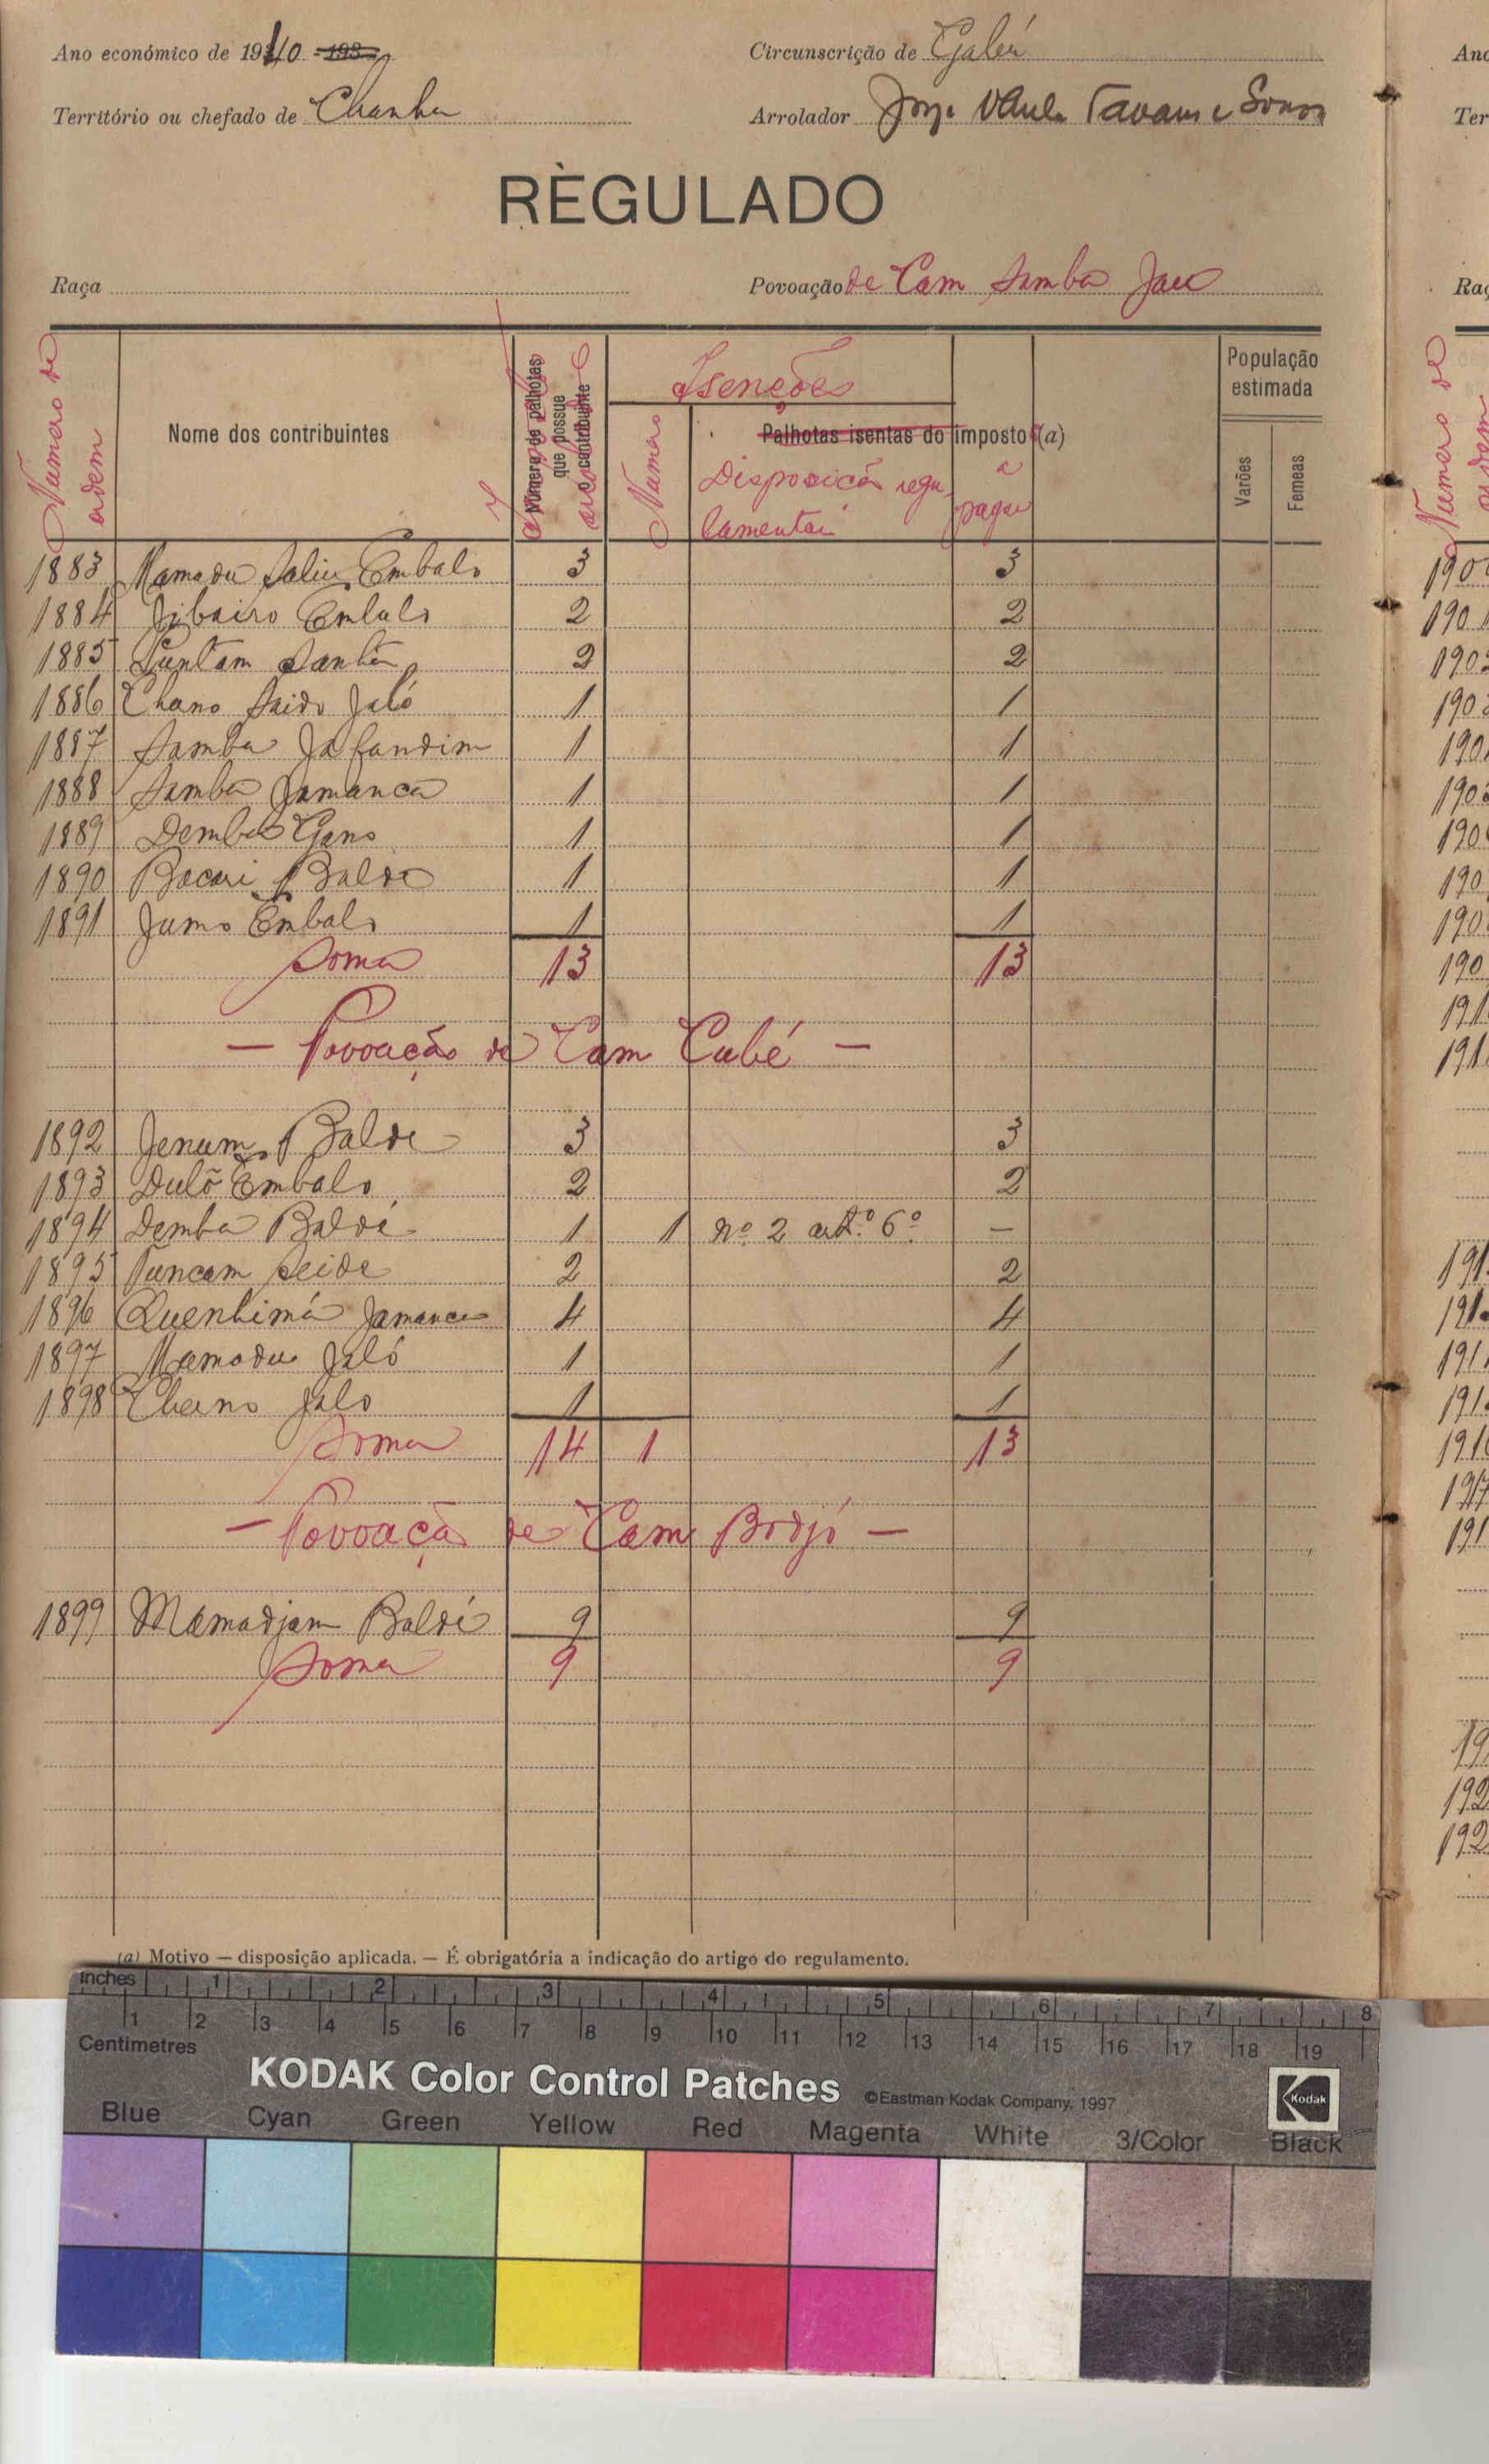 Ano económico de 1940 193
Circunscrição de Gabú
Território ou chefado de Chanha
Arrolador Jorge Tavares e Sousa
RÈGULADO
Raça
Povoação de Cam Samba Jau
Numero de ordem
Nome dos contribuintes
Número de palhotas que possue o contribuinte
Isenções
Numero
Palhotas isentas do imposto (a)
Disposição regulamentar
a pagar
População estimada
Varões
Femeas
1883 Mamadu Saliu Embaló 3 3
1884 Jibairo Embaló 2 2
1885 2 2
1886 Chano Saido Jaló 1 1
1887 Samba Jafandim 1 1
1888 Samba Jamanca 1 1
1889 Demba Gano 1 1
1890 Bacari Balde 1 1
1891 Jumo Embaló 1 1
Soma 13 13
— Povoação de Cam Cubé —
1892 Jenum Balde 3 3
1893 Duló Embalo 2 2
1894 Demba Baldé 1 1 nº 2 artº 6º —
1895 Puncam Seide 2 2
1896 Quenhimá Jamanca 4 4
1897 Mamadu Jaló 1 1
1898 Cherno Jalo 1 1
Soma 14 1 13
— Povoação de Cam Bodjó —
1899 Mamadjam Baldé 9 9
Soma 9 9
(a) Motivo — disposição aplicada. — É obrigatória a indicação do artigo do regulamento.
Inches 1 2 3 4 5 6 7 8
1 2 3 4 5 6 7 8 9 10 11 12 13 14 15 16 17 18 19
Centimetres
KODAK Color Control Patches ©Eastman Kodak Company, 1997 Kodak
Blue Cyan Green Yellow Red Magenta White 3/Color Black